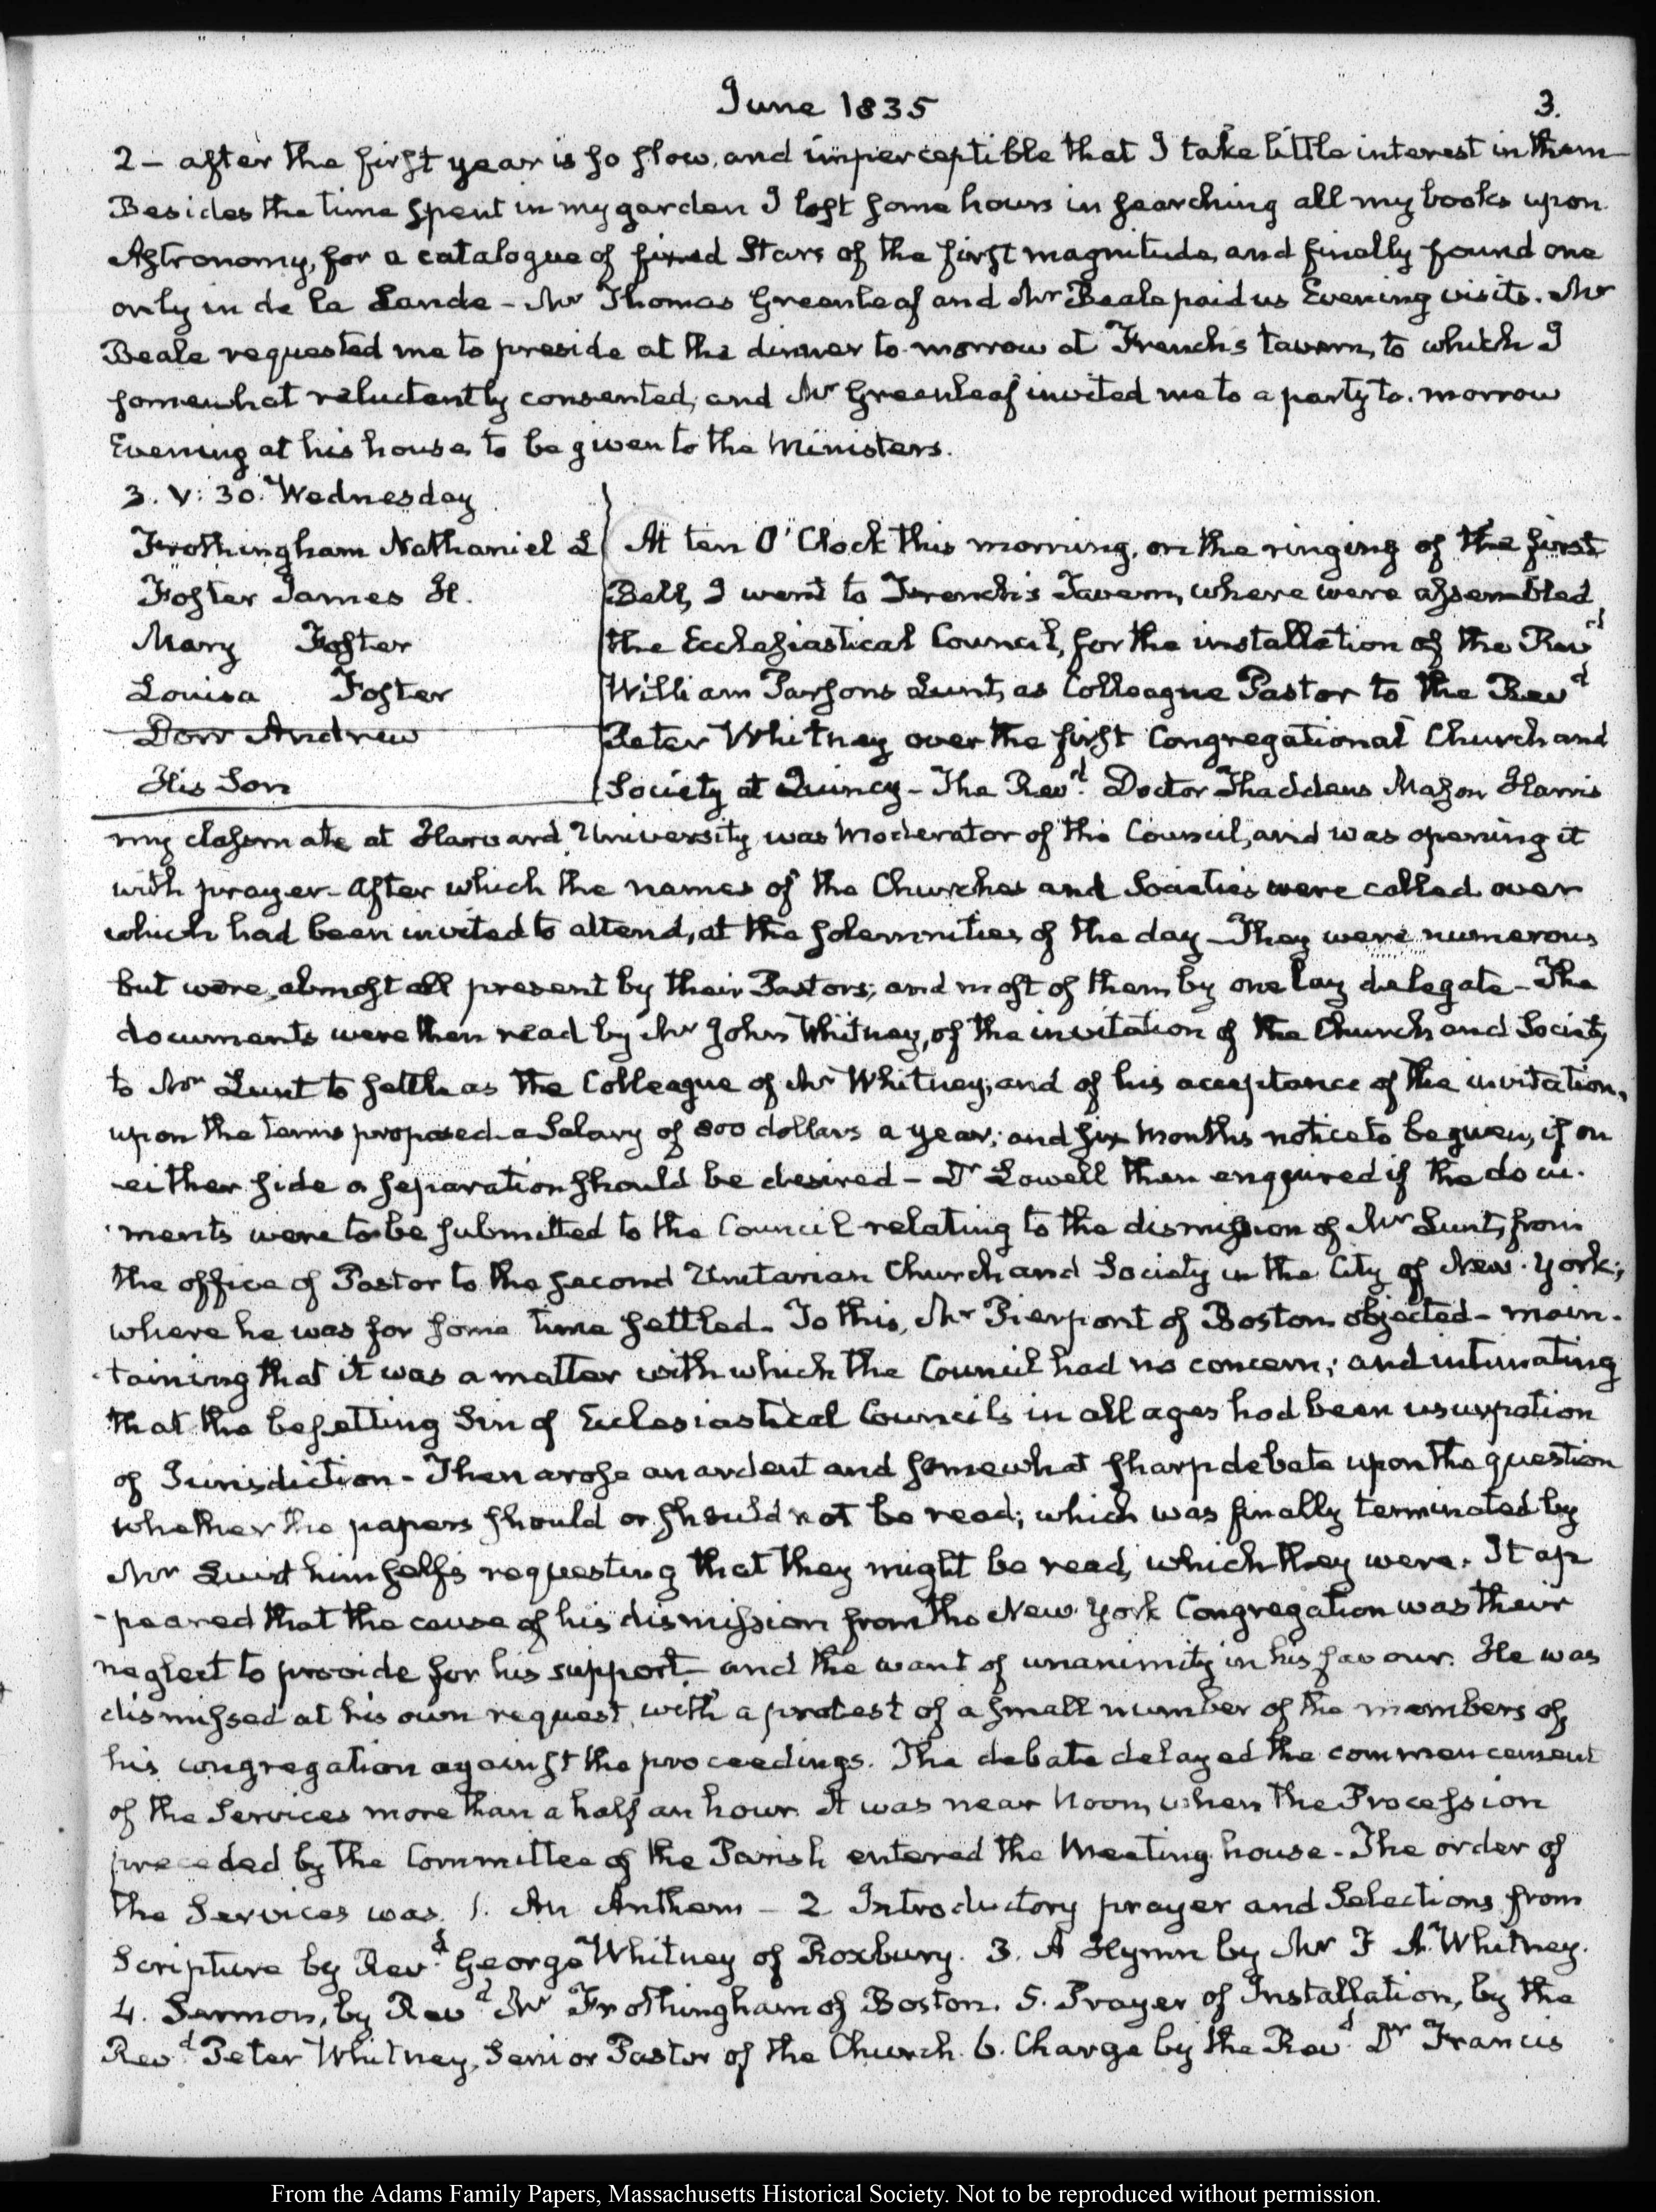 June 1835
3.
2 – after the first year is so slow, and imperceptible that I take little interest in them
Besides the time spent in my garden I lost some hours in searching all my books upon
Astronomy, for a catalogue of fixed Stars of the first magnitude, and finally found one
only in de la Lande – Mr Thomas Greenleaf and Mr Beale paid us Evening visits. Mr
Beale requested me to preside at the dinner to-morrow at French's tavern, to which I
somewhat reluctantly consented, and Mr Greenleaf invited me to a party to-morrow
Evening at his house to be given to the Ministers.
3. V: 30. Wednesday
Frothingham Nathaniel L
Foster James H.
Mary Foster
Louisa Foster
Dow Andrew
His Son
At ten O'Clock this morning, on the ringing of the first
Bell, I went to French's Tavern, where were assembled
the Ecclesiastical Council, for the installation of the Revd
William Parsons Lunt, as Colleague Pastor to the Revd
Peter Whitney over the first Congregational Church and
Society at Quincy – The Revd. Doctor Thaddeus Mason Harris
my classmate at Harvard University was Moderator of the Council, and was opening it
with prayer – After which the names of the Churches and Societies were called over
which had been invited to attend, at the solemnities of the day – They were numerous
but were almost all present by their Pastors; and most of them by one lay delegate – The
documents were then read by Mr John Whitney, of the invitation of the Church and Society
to Mr Lunt to settle as the Colleague of Mr Whitney; and of his acceptance of the invitation,
upon the terms proposed a Salary of 800 dollars a year; and six months notice to be given, if on
either side a separation should be desired – Dr Lowell then enquired if the docu-
ments were to be submitted to the Council relating to the dismission of Mr Lunt, from
the office of Pastor to the second Unitarian Church and Society in the City of New-York;
where he was for some time settled – To this, Mr Pierpont of Boston objected – main-
taining that it was a matter with which the Council had no concern; and intimating
that the besetting Sin of Ecclesiastical Councils in all ages had been usurpation
of Jurisdiction – Then arose an ardent and somewhat sharp debate upon the question
whether the papers should or should not be read; which was finally terminated by
Mr Lunt himself's requesting that they might be read, which they were. It ap
-peared that the cause of his dismission from the New-York Congregation was their
neglect to provide for his support and the want of unanimity in his favour. He was
dismissed at his own request, with a protest of a small number of the members of
his congregation against the proceedings. The debate delayed the commencement
of the Services more than a half an hour. It was near Noon, when the Procession
preceded by the Committee of the Parish entered the Meeting house – The order of
the Services was. 1. An Anthem – 2. Introductory prayer and Selections from
Scripture by Revd. George Whitney of Roxbury. 3. A Hymn by Mr F A. Whitney.
4. Sermon, by Revd Mr Frothingham of Boston. 5. Prayer of Installation, by the
Revd. Peter Whitney, Senior Pastor of the Church. 6. Charge by the Revd. Dr Francis
From the Adams Family Papers, Massachusetts Historical Society. Not to be reproduced without permission.